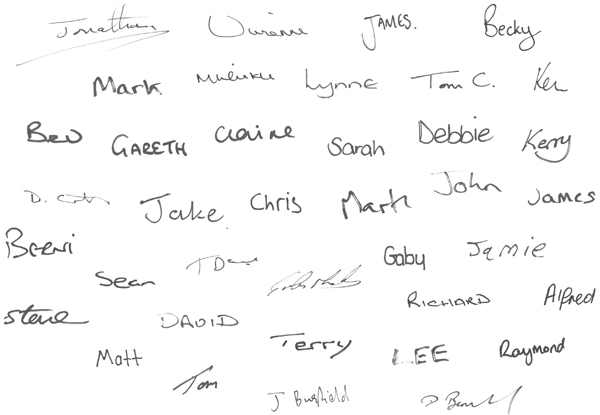 Jonathan Vivienne JAMES. Becky
Mark. Lynne Tom C. Ken
Bev GARETH Claire Sarah Debbie Kerry
D. Jake Chris Mark John James
Berni Sean T Gaby Jamie
Steve DAVID RICHARD Alfred
Matt Terry LEE Raymond
Tom J Busfield D